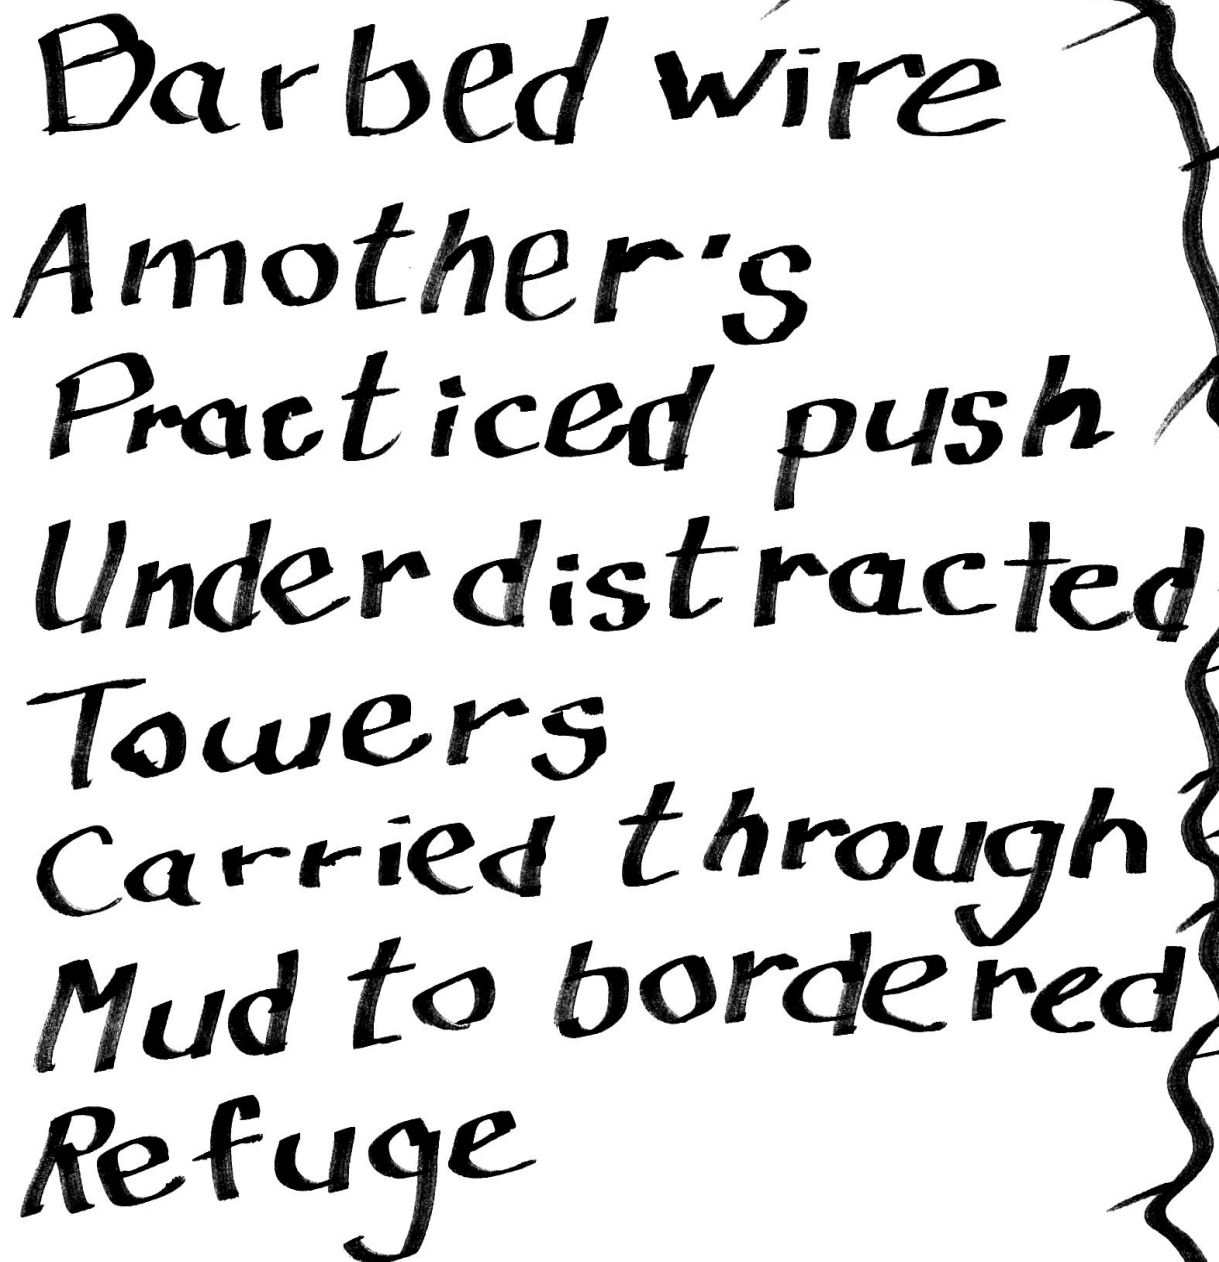 Barbed wire
A mother's
Practiced push
Under distracted
Towers
Carried through
Mud to bordered
Refuge